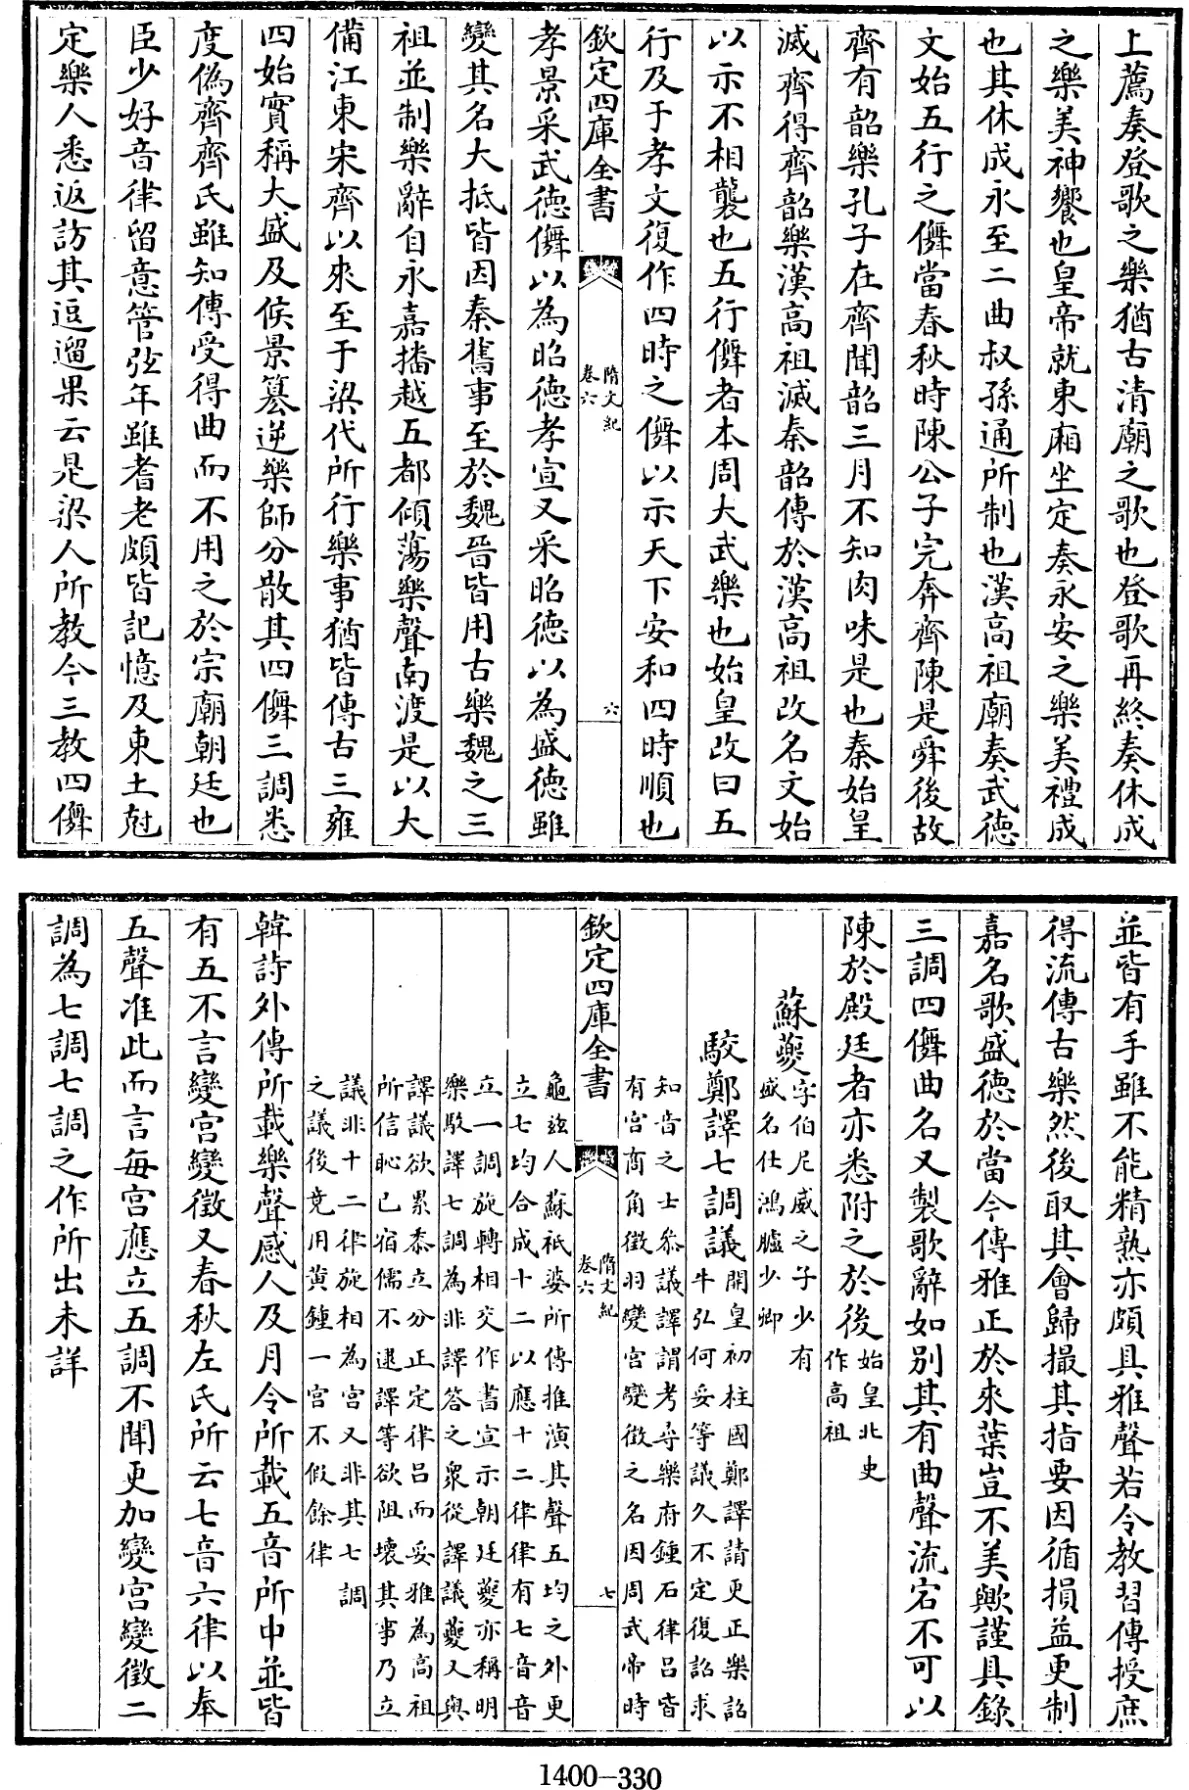 上薦奏登歌之樂猶古清廟之歌也登歌再終奏休成
之樂美神饗也皇帝就東廂坐定奏永安之樂美禮成
也其休成永至二曲叔孫通所制也漢高祖廟奏武德
文始五行之儛當春秋時陳公子完奔齊陳是舜後故
齊有韶樂孔子在齊聞韶三月不知肉味是也秦始皇
滅齊得齊韶樂漢高祖滅秦韶傳於漢高祖改名文始
以示不相襲也五行儛者本周大武樂也始皇改曰五
行及于孝文復作四時之儛以示天下安和四時順也
欽定四庫全書
隋文紀
卷六
六
孝景采武德儛以為昭德孝宣又采昭德以為盛德雖
變其名大抵皆因秦舊事至於魏晉皆用古樂魏之三
祖並制樂辭自永嘉播越五都傾蕩樂聲南渡是以大
備江東宋齊以來至于梁代所行樂事猶皆傳古三雍
四始實稱大盛及侯景篡逆樂師分散其四儛三調悉
度偽齊齊氏雖知傳受得曲而不用之於宗廟朝廷也
臣少好音律留意管弦年雖耆老頗皆記憶及東土尅
定樂人悉返訪其逗遛果云是梁人所教今三教四儛
並皆有手雖不能精熟亦頗具雅聲若令教習傳授庶
得流傳古樂然後取其會歸撮其指要因循損益更制
嘉名歌盛德於當今傳雅正於來葉豈不美歟謹具錄
三調四儛曲名又製歌辭如別其有曲聲流宕不可以
陳於殿廷者亦悉附之於後
始皇北史
作高祖
蘇夔
字伯尼威之子少有
盛名仕鴻臚少卿
駮鄭譯七調議
開皇初柱國鄭譯請更正樂詔
牛弘何妥等議久不定復詔求
知音之士叅議譯謂考尋樂府鍾石律吕皆
有宮商角徵羽變宮變徵之名因周武帝時
欽定四庫全書
隋文紀
卷六
七
龜兹人蘇祗婆所傳推演其聲五均之外更
立七均合成十二以應十二律律有七音音
立一調旋轉相交作書宣示朝廷夔亦稱明
樂駮譯七調為非譯答之衆從譯議夔又與
譯議欲累黍立分正定律吕而妥雅為高祖
所信恥已宿儒不逮譯等欲阻壞其事乃立
議非十二律旋相為宮又非其七調
之議後竟用黄鍾一宮不假餘律
韓詩外傳所載樂聲感人及月令所載五音所中並皆
有五不言變宮變徵又春秋左氏所云七音六律以奉
五聲准此而言每宮應立五調不聞更加變宮變徵二
調為七調七調之作所出未詳
1400-330